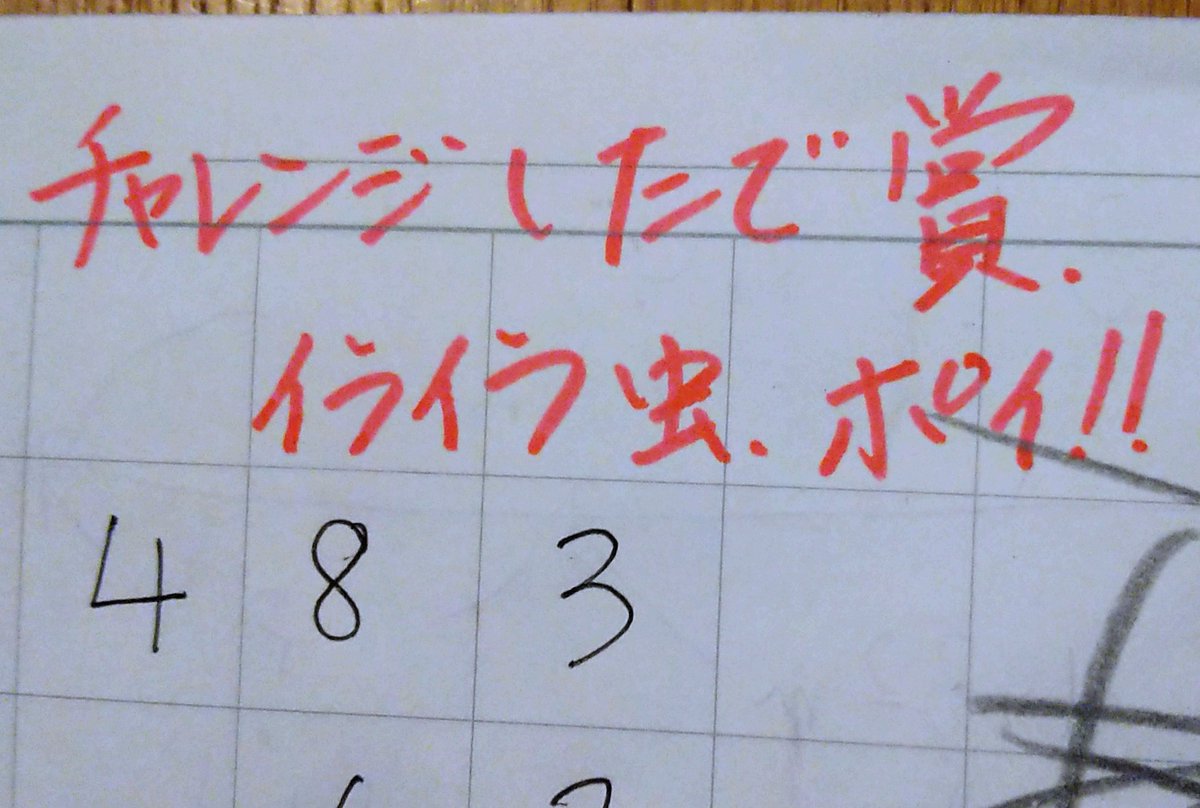 チャレンジしたで賞.
イライラ虫.ポイ!!
4 8 3